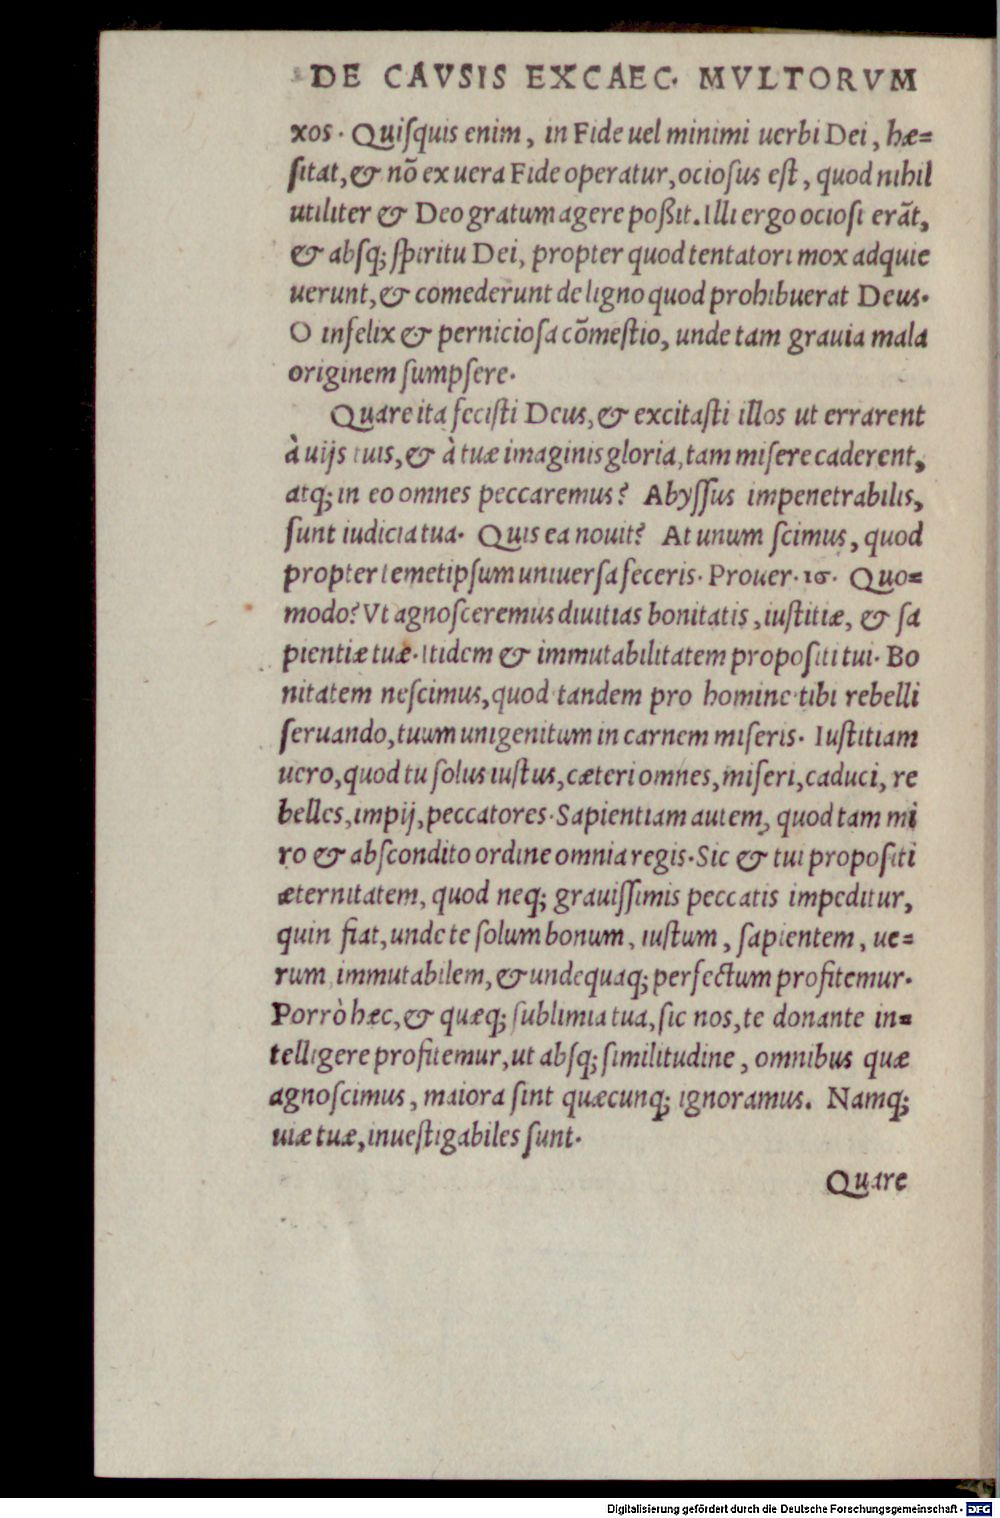 DE CAVSIS EXCAEC. MVLTORVM
xos. Quiſquis enim, in Fide uel minimi uerbi Dei, hæ=
ſitat, & nõ ex uera Fide operatur, ocioſus eſt, quod nihil
utiliter & Deo gratum agere poßit. Illi ergo ocioſi erãt,
& abſq; ſpiritu Dei, propter quod tentatori mox adquie
uerunt, & comederunt de ligno quod prohibuerat Deus.
O infelix & pernicioſa cõmeſtio, unde tam grauia mala
originem ſumpſere.
Quare ita feciſti Deus, & excitaſti illos ut errarent
à uijs tuis, & à tuæ imaginis gloria, tam miſere caderent,
atq; in eo omnes peccaremus? Abyſſus impenetrabilis,
ſunt iudicia tua. Quis ea nouit? At unum ſcimus, quod
propter temetipſum uniuerſa feceris. Prouer. 16. Quo=
modo? Vt agnoſceremus diuitias bonitatis, iuſtitiæ, & ſa
pientiæ tuæ. Itidem & immutabilitatem propoſiti tui. Bo
nitatem neſcimus, quod tandem pro homine tibi rebelli
ſeruando, tuum unigenitum in carnem miſeris. Iuſtitiam
uero, quod tu ſolus iuſtus, cæteri omnes, miſeri, caduci, re
belles, impij, peccatores. Sapientiam autem, quod tam mi
ro & abſcondito ordine omnia regis. Sic & tui propoſiti
æternitatem, quod neq; grauiſſimis peccatis impeditur,
quin fiat, unde te ſolum bonum, iuſtum, ſapientem, ue=
rum immutabilem, & undequaq; perfectum profitemur.
Porrò hæc, & quæq; ſublimia tua, ſic nos, te donante in=
telligere profitemur, ut abſq; ſimilitudine, omnibus quæ
agnoſcimus, maiora ſint quæcunq; ignoramus. Namq;
uiæ tuæ, inueſtigabiles ſunt.
Quare
Digitalisierung gefördert durch die Deutsche Forschungsgemeinschaft - DFG